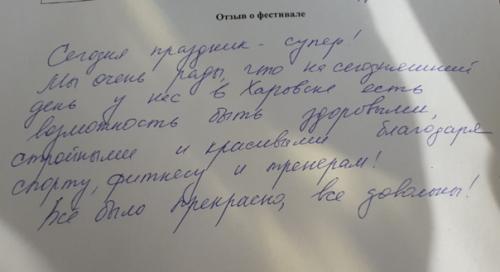 Отзыв о фестивале
Сегодня праздник - супер!
Мы очень рады, что на сегодняшний
день у нас в Харовске есть
возможность быть здоровыми,
стройными и красивыми благодаря
спорту, фитнесу и тренерам!
Всё было прекрасно, все довольны!